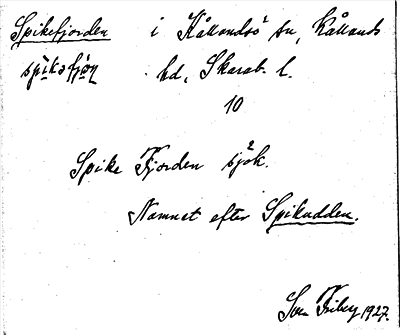 Spikefjorden i Kållandsö sn, Kållands
spìkəfjòn hd, Skarab. l.
10
Spike Fjorden sjök.
Namnet efter Spikudden.
Sven Friberg 1927.